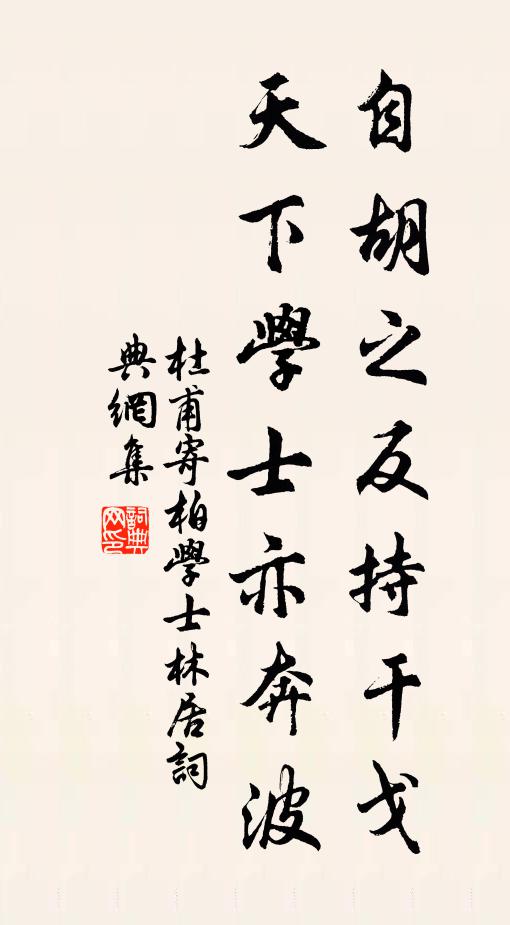 自胡之反持干戈
天下學士亦奔波
杜甫寄柏學士林居詞
典網集
詞典
网印